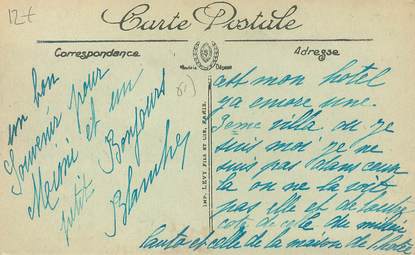 12+
Carte Postale
Correspondance
Adresse
un bon
Souvenir pour
et un
petit Bonjours
Blanche
IMP. LEVY FILS ET CIE, PARIS.
est mon hotel
ya encore une
villa ou je
suis moi je ne
suis pas dans ceux
la on ne la voit
pas elle et de
cote de du milieu
et celle de la maison de